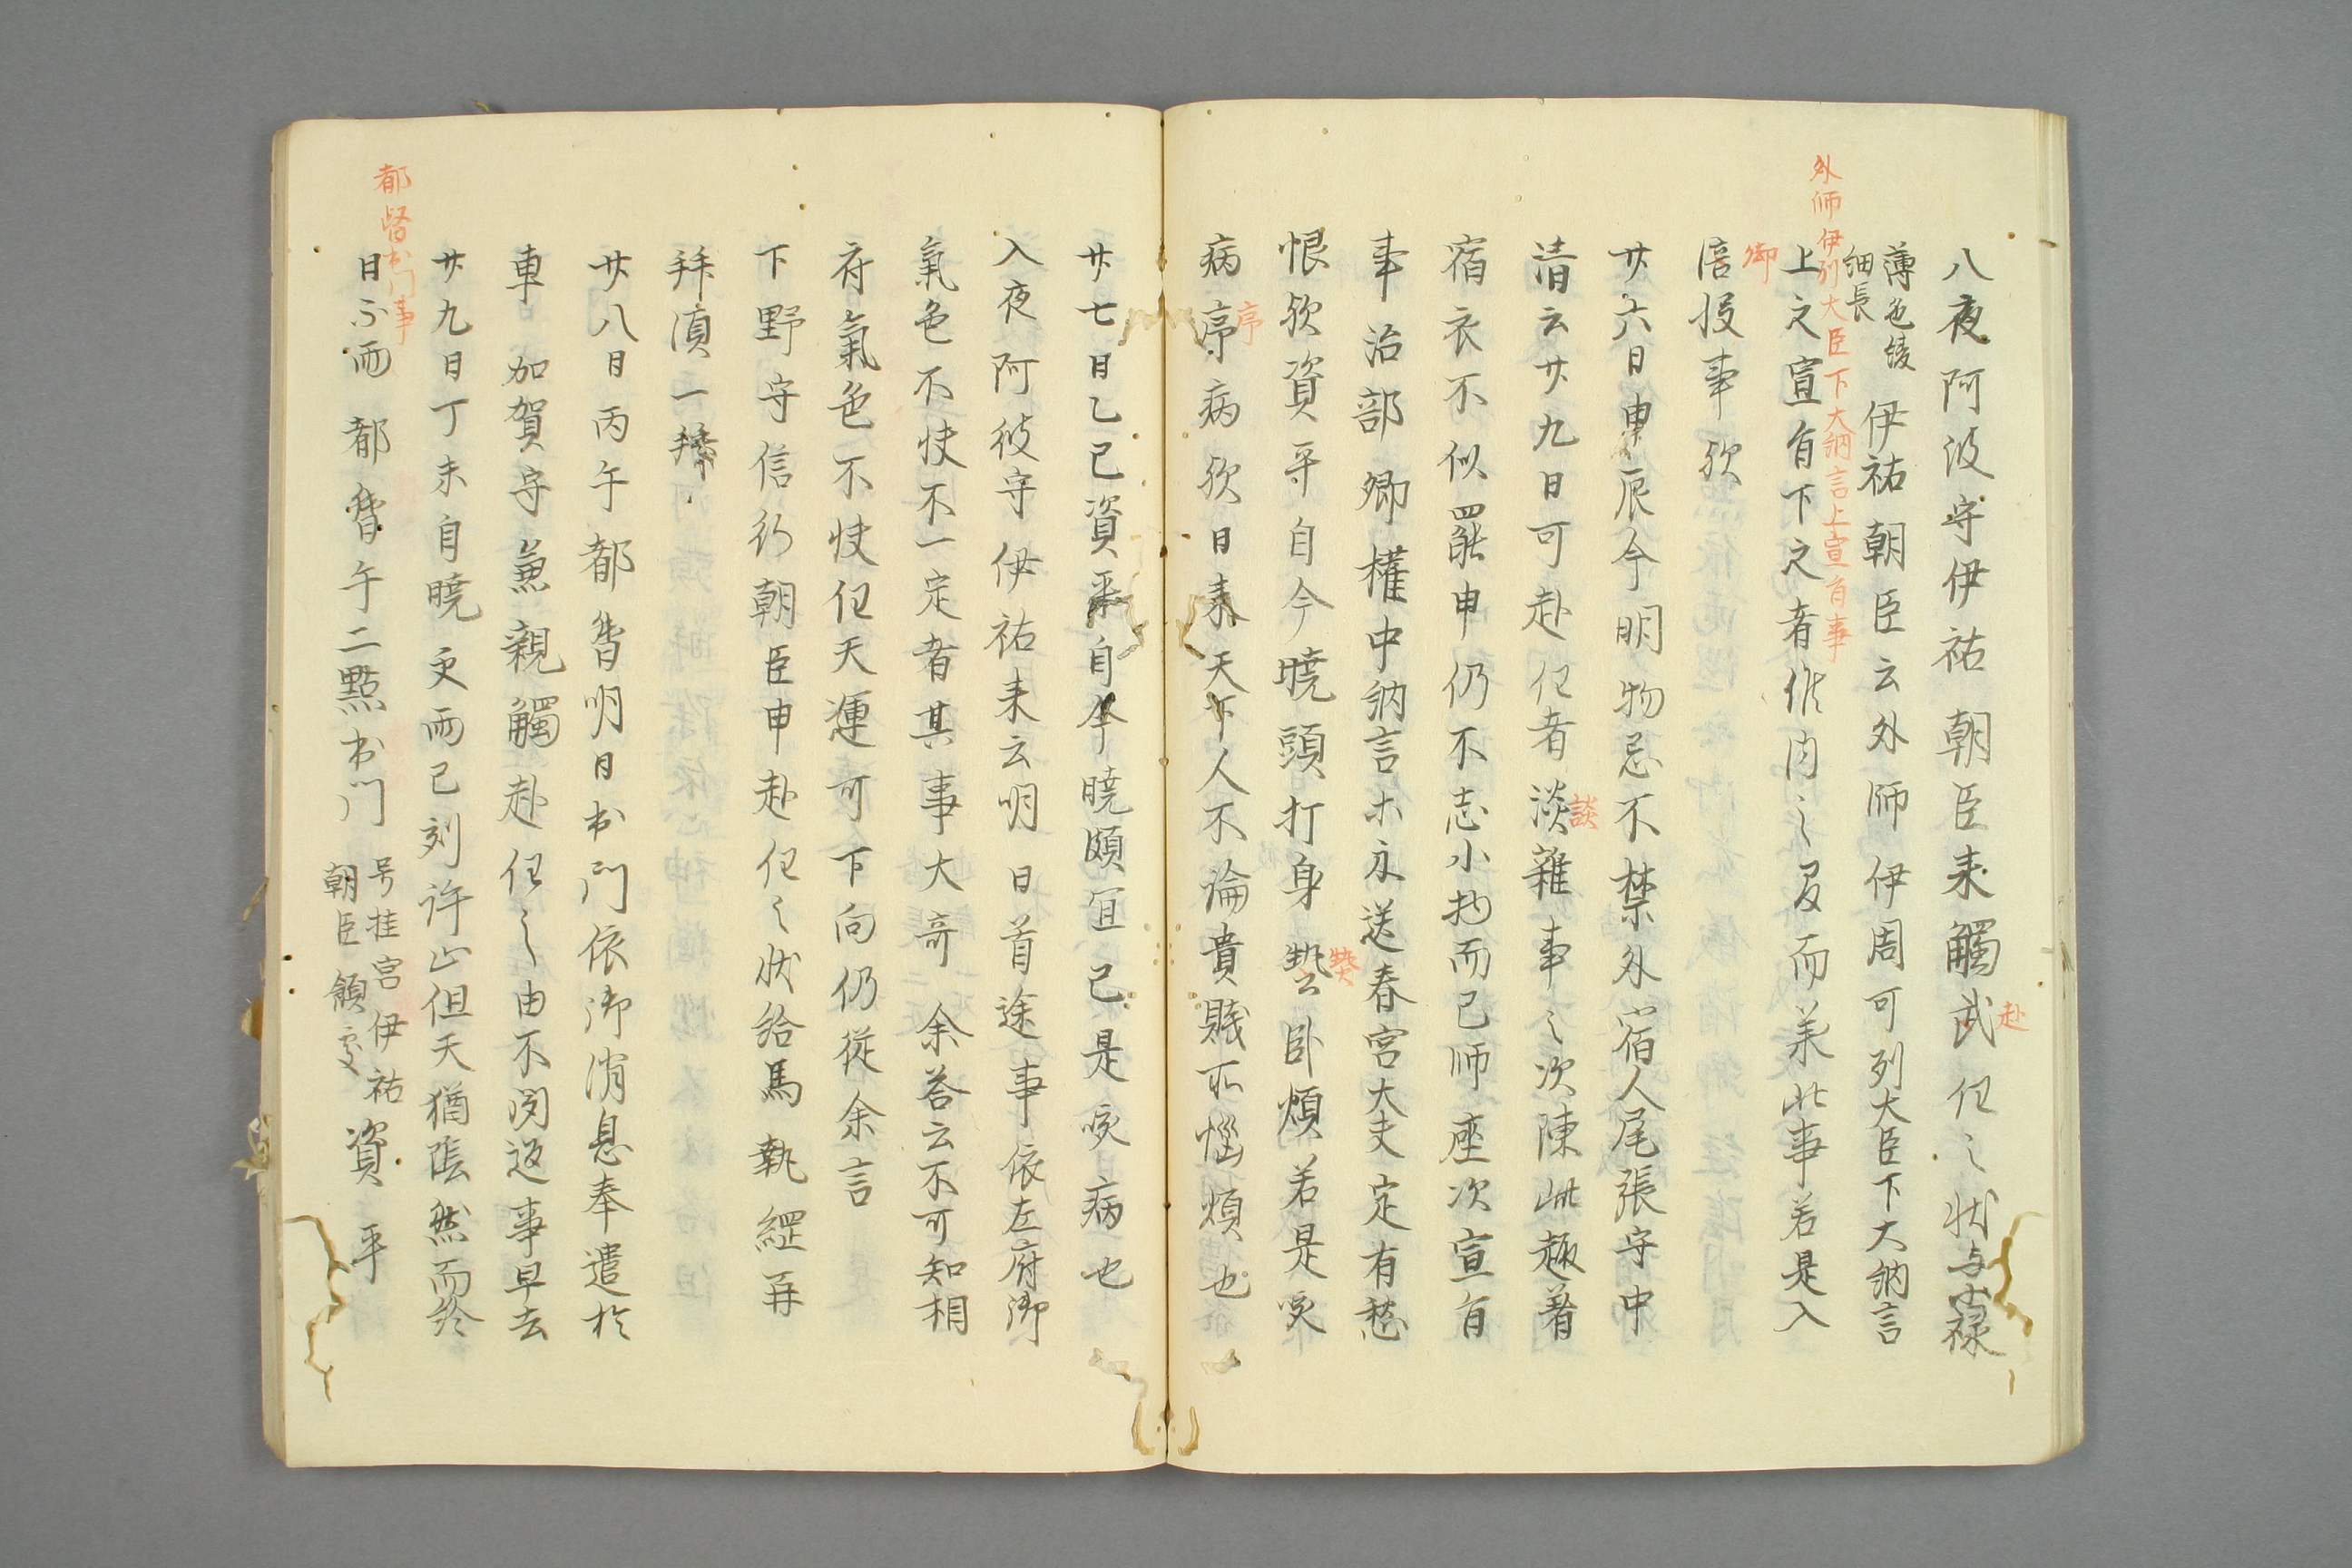 入夜阿波守伊祐朝臣来觸武任之状与小禄
赴
薄色綾
細長
伊祐朝臣云外帥伊周可列大臣下大納言
外帥伊列大臣下大納言上宣旨事
上之宣旨下之者作内之及而業此事若是入
御
陪役事欤
廿六日甲辰今明物忌不禁外宿人尾張守中
清云廿九日可赴任者淡雑事之次陳此趣着
談
宿衣不似罷申仍不志小物而已帥座次宣旨
事治部卿権中納言示永送春宮大夫定有愁
恨欤資平自今暁頭打身熱云臥煩若是咳
熱
病渟病欤日来天下人不論貴賤所悩煩也
序
廿七日乙巳資平自今暁頗宜已是咳病也
入夜阿彼守伊祐来云明日首途事依左府御
氣色不快不一定者其事大奇余答云不可知相
府氣色不快任天運可下向仍従余言
下野守信行朝臣申赴任之状給馬執綱再
拜須一拜
廿八日丙午都督明日出門依御消息奉遣於
車加賀守兼親觸赴任之由不聞返事早去
廿九日丁未自暁更雨已剋許止但天猶陰然而終
都督出門事
日不雨都督午二點出門
号桂宮伊祐
朝臣領處
資平